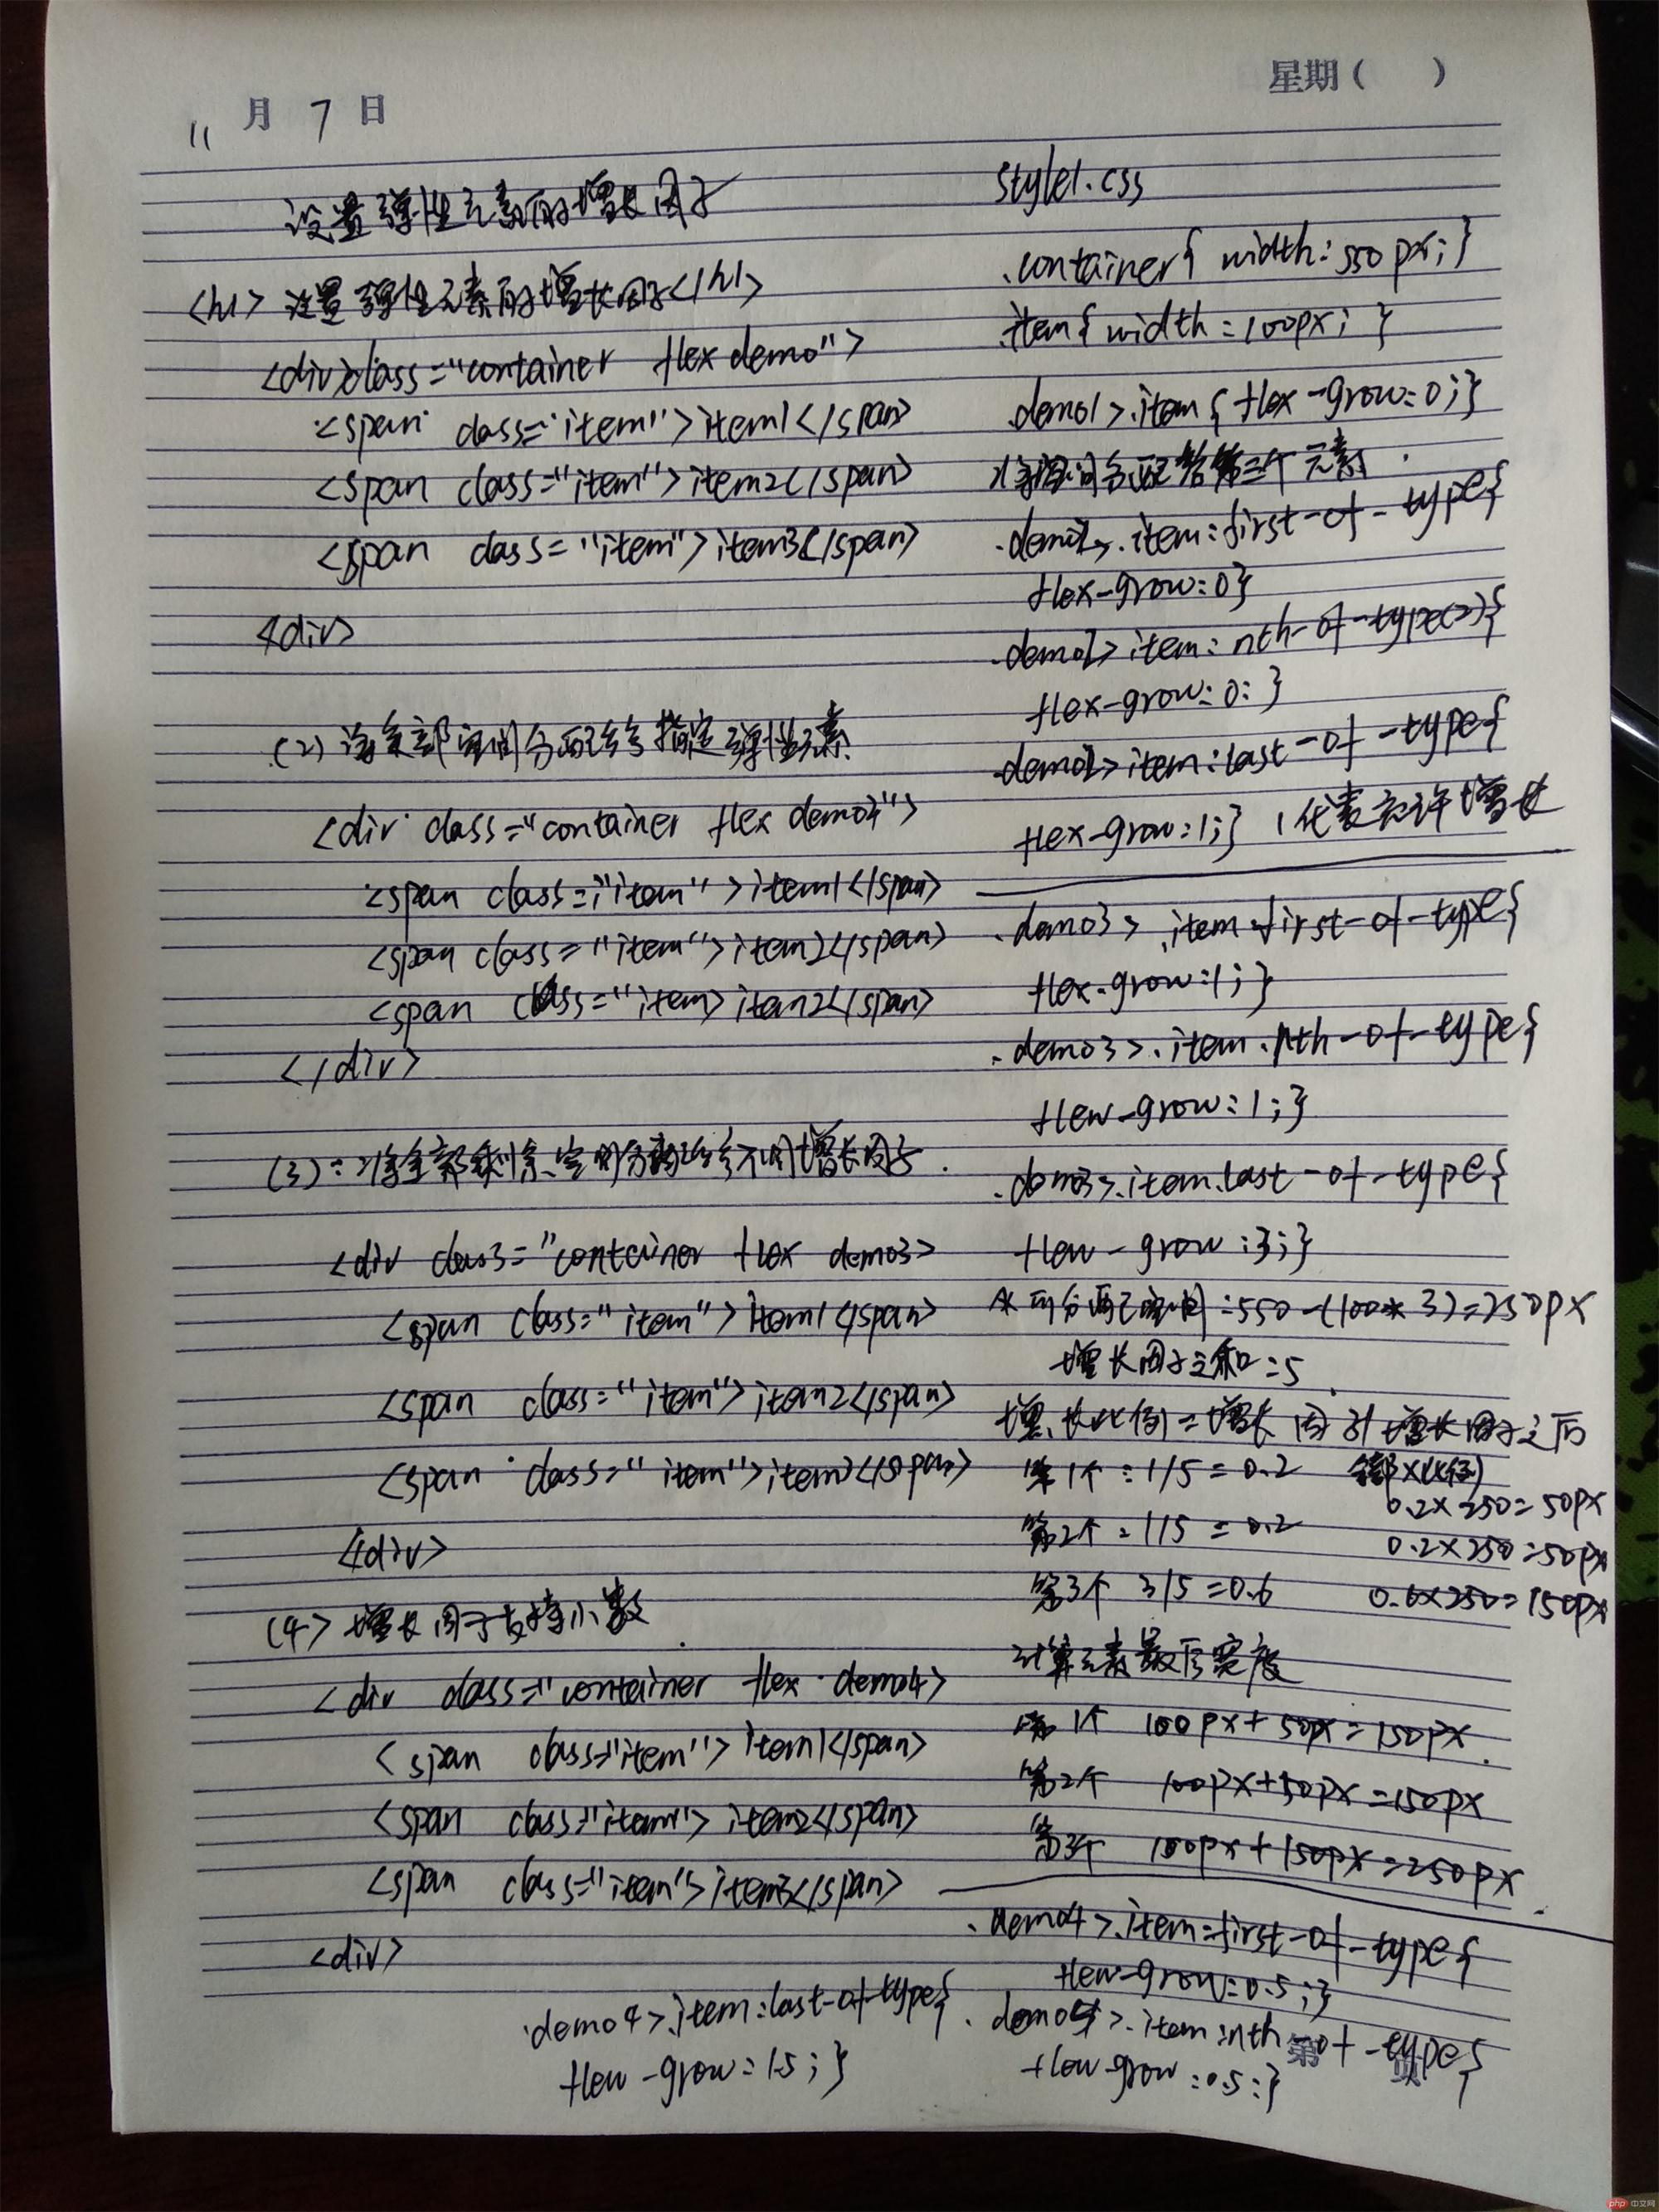 11 月 7 日
星期( )
设置弹性元素的增长因子
<h1> 设置弹性元素的增长因子</h1>
<div class="container flex demo">
<span class="item">item1</span>
<span class="item">item2</span>
<span class="item">item3</span>
<div>
(2) 将全部空间分配给指定弹性元素
<div class="container flex demo2">
<span class="item">item1</span>
<span class="item">item2</span>
<span class="item>item2</span>
</div>
(3):将全部剩余空间分配给不同增长因子.
<div class="container flex demo3>
<span class="item">item1</span>
<span class="item">item2</span>
<span class="item">item3</span>
<div>
(4> 增长因子支持小数
<div class="container flex demo4>
<span class="item">item1</span>
<span class="item">item2</span>
<span class="item">item3</span>
<div>
style1.css
.container{ width:550px;}
.item{ width:100px; }
.demo1>.item{flex-grow:0;}
将空间分配给第三个元素
.demo2>.item:first-of-type{
flex-grow:0}
.demo2>item:nth-of-type(2){
flex-grow:0:}
.demo2>item:last-of-type{
flex-grow:1;} 1代表允许增长
.demo3>.item:first-of-type{
flex-grow:1;}
.demo3>.item.nth-of-type{
flew-grow:1;}
.demo3>.item.last-of-type{
flew-grow:3;}
可分配空间:550-(100*3)=250px
增长因子之和:5
增长比例=增长因子/增长因子之后
第1个:1/5=0.2
0.2×250=50px
第2个:1/5=0.2 0.2×250=50px
第3个 3/5=0.6 0.6×250=150px
计算元素最后宽度
第1个 100px+50px=150px.
第2个 100px+50px=150px
第3个 100px+150px=250px.
.demo4>.item:first-of-type{
flew-grow:0.5;}
.demo4>.item:nth-of-type{
flew-grow:0.5:}
.demo4>.item:last-of-type{
flew-grow:1.5;}
第 页
php 中文网